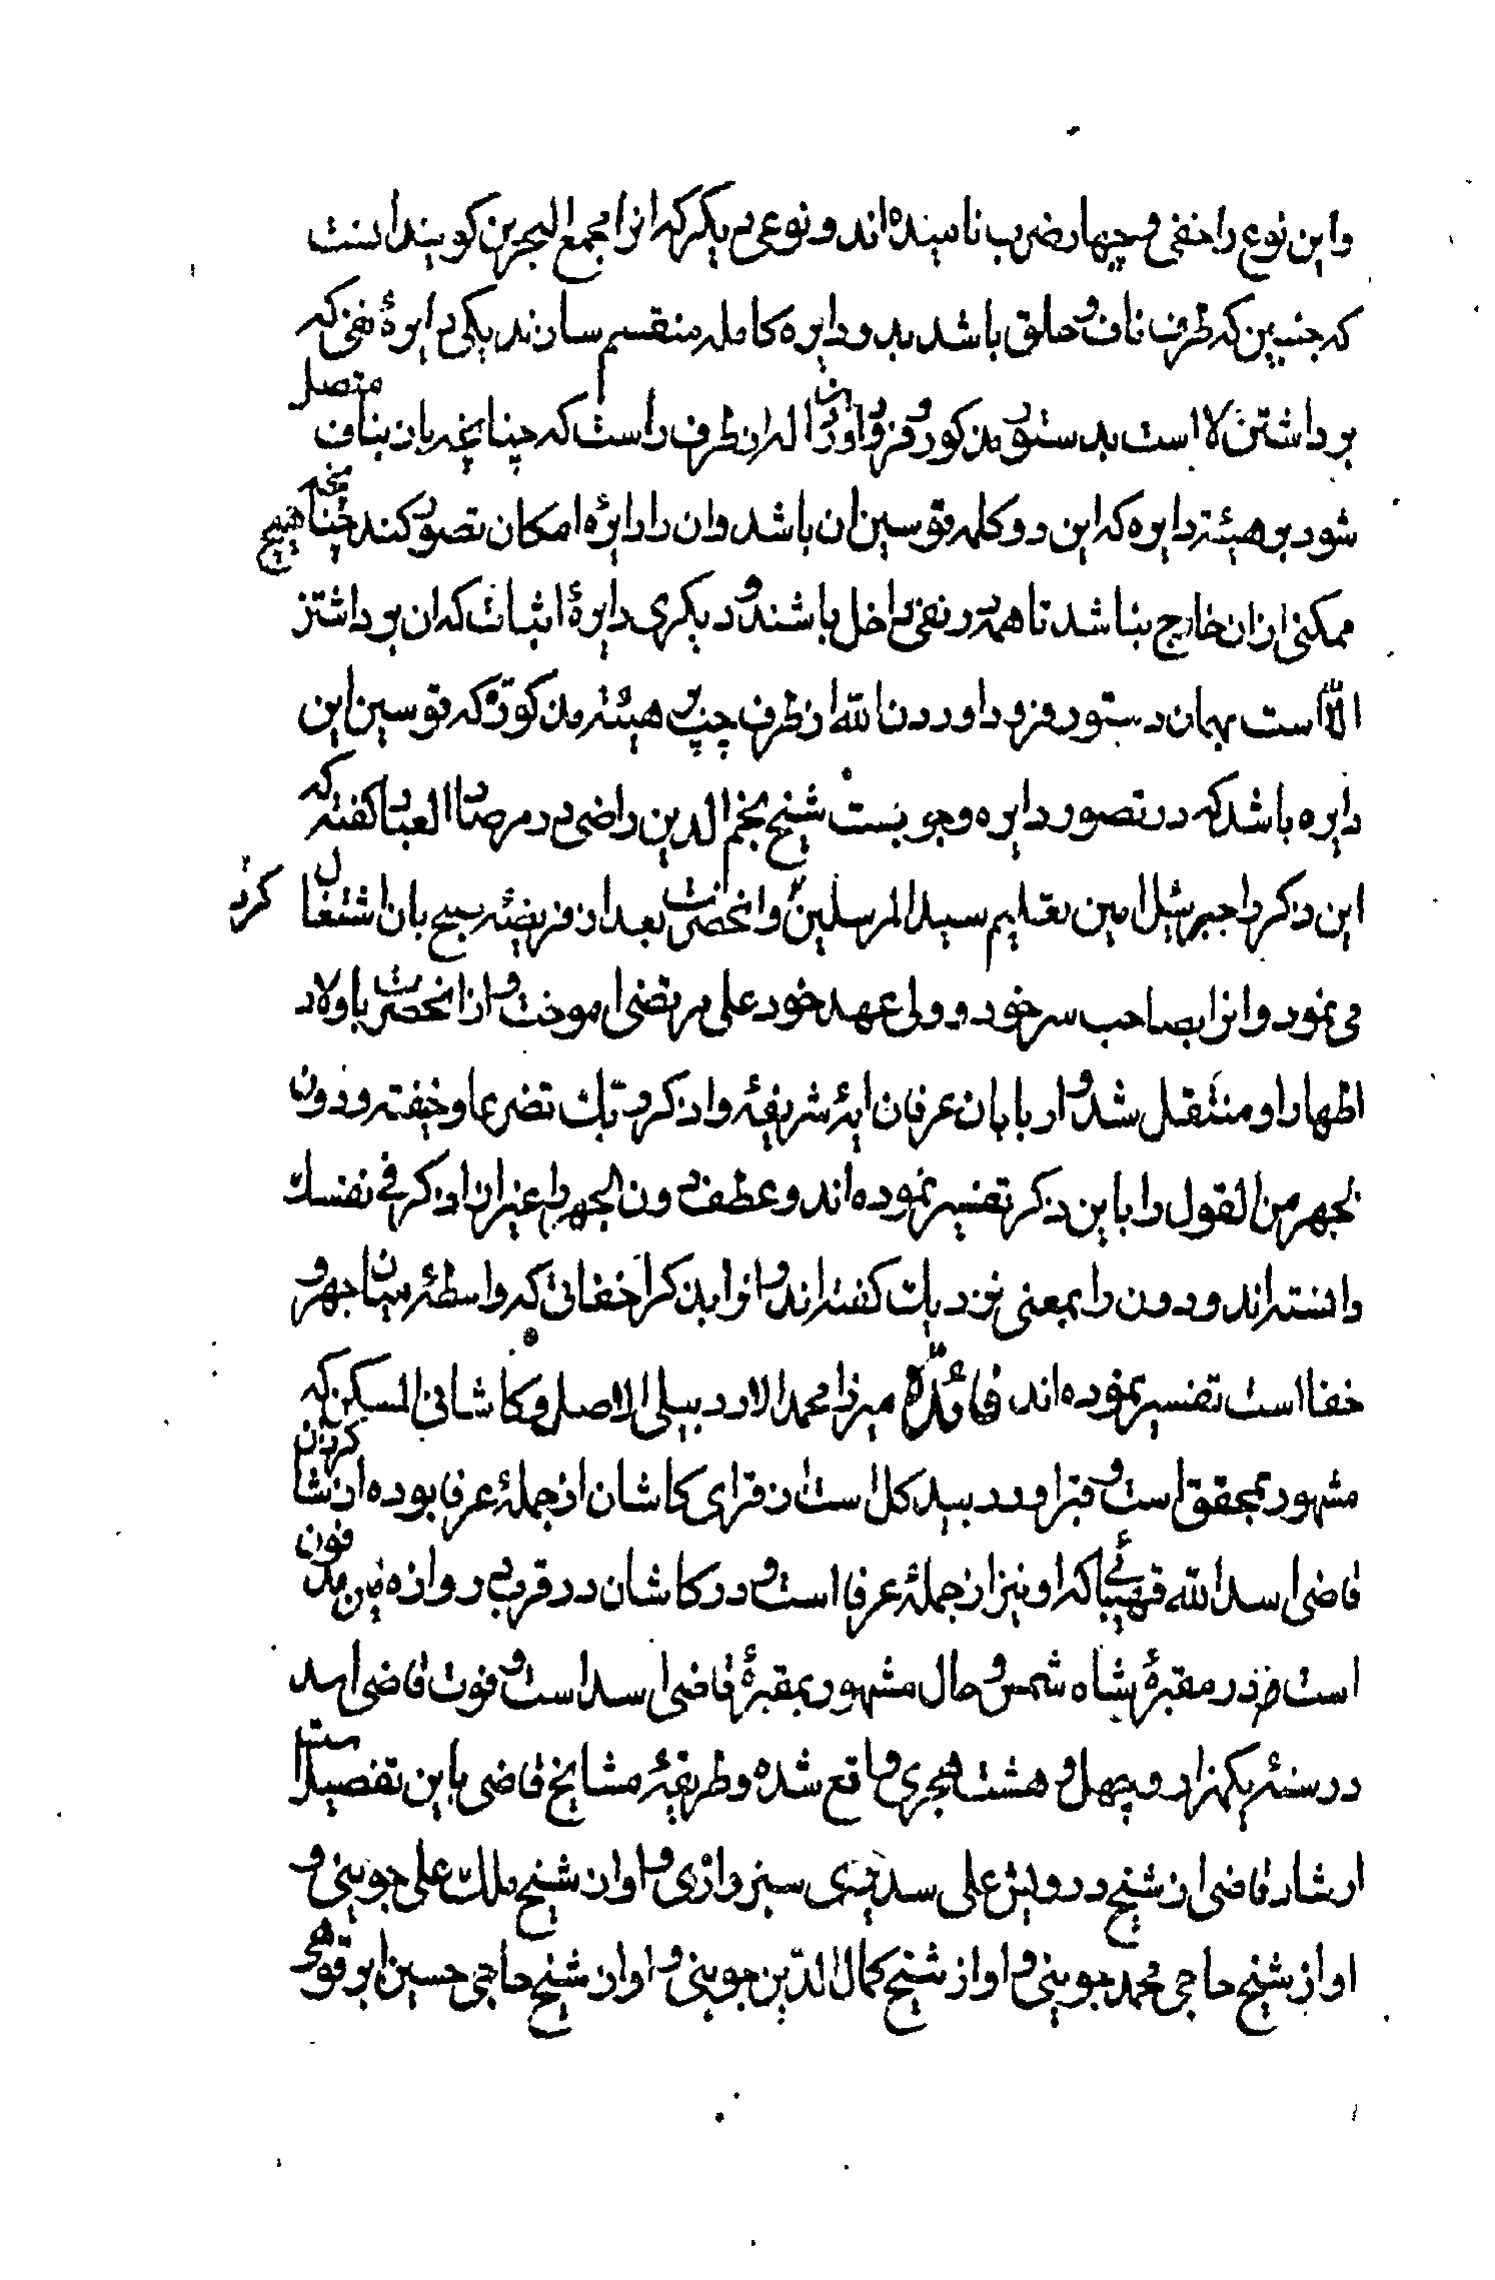 و این نوع را خفی و چهار ضرب نامیده اند و نوعی دیگر که انرا مجمع البحرین کویند انست
که جنبین که طرف ناف و حلق باشد بدو دایره کامله منقسم سازند یکی دایرهٔ نفی که
برداشتن لا است بدستور مذکور و فرود آوردن اله از طرف راست که چنانچه بان بناف متصل
شود بر هیئة دایره که این دو کلمه قوسین ان باشد و ان را دایرهٔ امکان تصور کنند چنانچه هیچ
ممکنی از ان خارج بناشد تا همه در نفی داخل باشند و دیکری دایرهٔ اثبات که ان برداشتن
الا است بهمان دستور و فرود اوردن الله از طرف چپ بر هیئة مذکوره که قوسین این
دایره باشد که در تصور دایره وجوبست شیخ نجم الدین راضی در مرصاد العباد کفته که
این ذکر را جبرئیل امین تعلیم سید المرسلین و انحضرت بعد از فریضهٔ صبح بان اشتغال کرد
می نمود و انرا بصاحب سر خود و ولی عهد خود علی مرتضی اموخت و از انحضرت باولاد
اطهار او منتقل شد و اربابان عرفان ایهٔ شریفهٔ واذکر ربّك تضرعا وخیفته ودون
الجهر من القول را باین ذکر تفسیر نموده اند و عطف دون الجهر را غیر از اذکر فی نفسك
دانسته اند و دون را بمعنی نزدیك کفته اند و انرا بذکر اخفاتی که واسطهٔ میان جهر و
خفا است تفسیر نموده اند فائدّه میرزا محمد الاردبیلی الاصل و کاشانی المسکن که
مشهور بمحقق است و قبر او در بیدکل است از قرای کاشان از جملهٔ عرفا بوده از شاکردان
قاضی اسد الله قهپائی که او نیز از جملهٔ عرفا است و در کاشان در قرب دروازه فین مدفون
است در مقبرهٔ شاه شمس و حال مشهور بمقبرهٔ قاضی اسد است و فوت قاضی اسد
در سنهٔ یکهزار و چهل و هشت هجری واقع شده و طریقهٔ مشایخ قاضی باین تفصیل است
ارشاد قاضی از شیخ درویش علی سدیری سبزواری و او از شیخ ملك علی جوینی و
او از شیخ حاجی محمد جوینی و او از شیخ کمال الدّین جوینی و او از شیخ حاجی حسین ابرقوهی